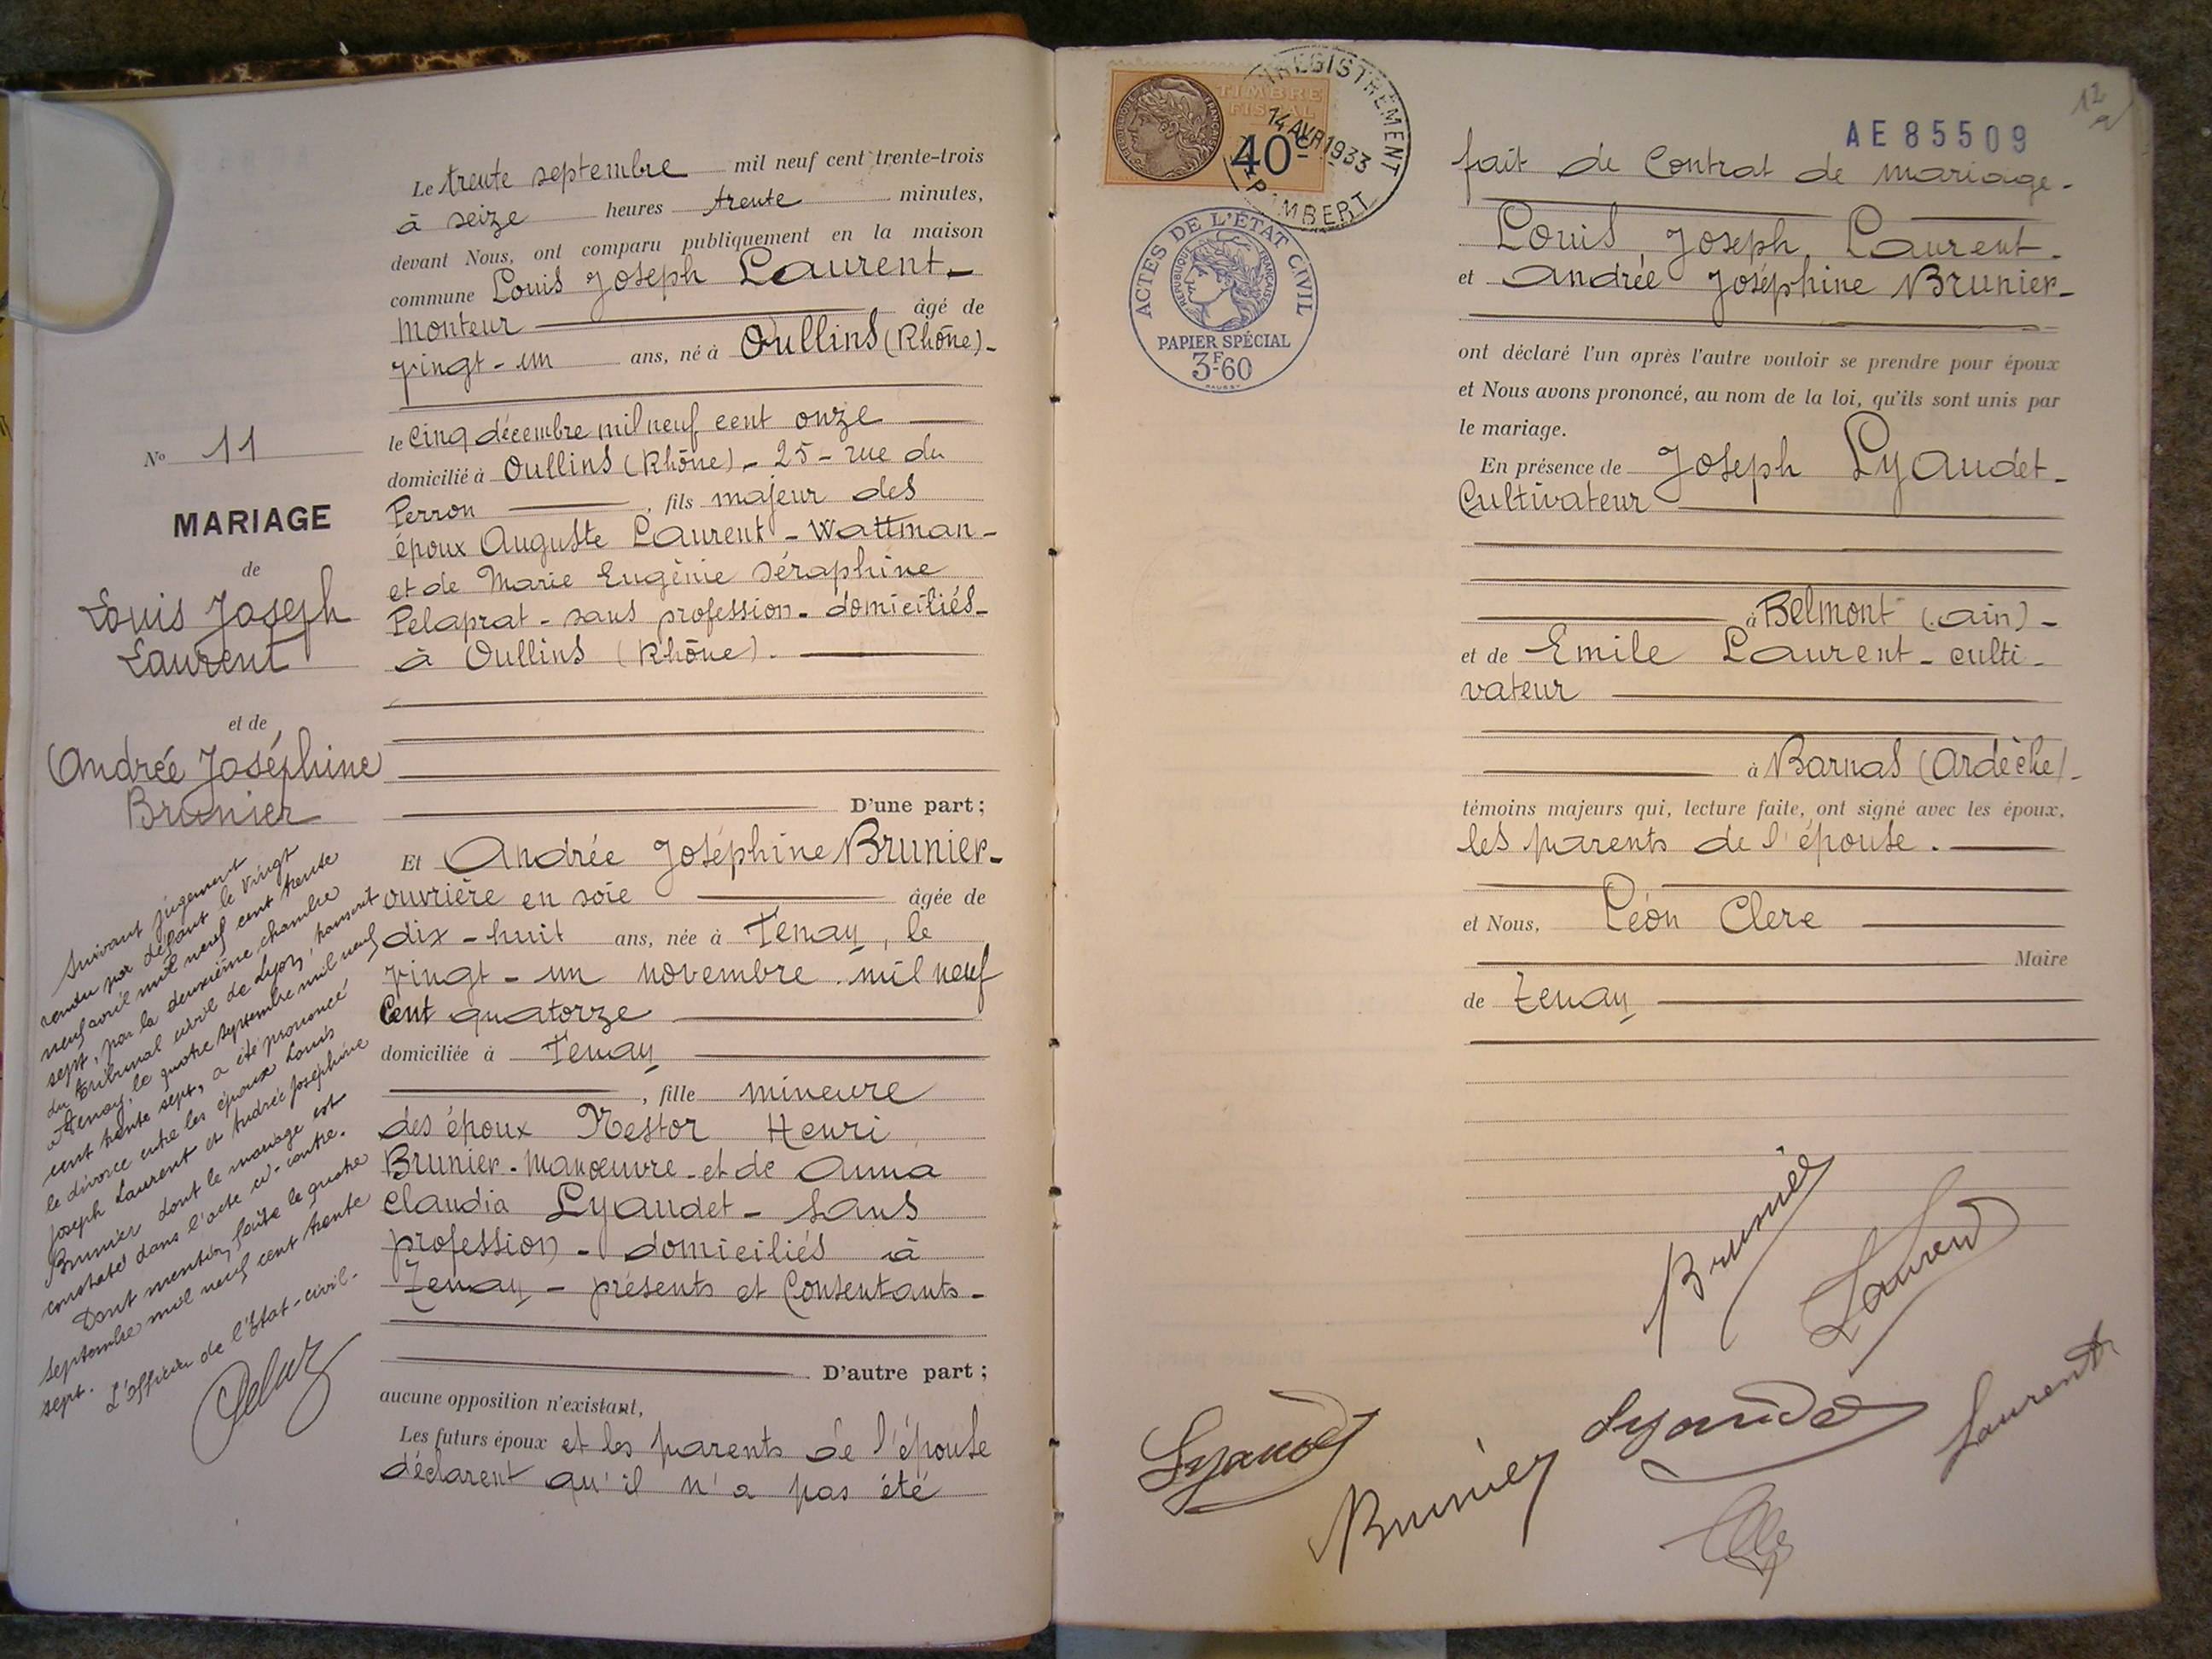 Le trente septembre mil neuf cent trente-trois
à seize heures trente minutes,
devant Nous, ont comparu publiquement en la maison
commune Louis Joseph Laurent -
monteur âgé de
vingt-un ans, né à Oullins (Rhône) -
le cinq décembre mil neuf cent onze
domicilié à Oullins (Rhône) - 25 - rue du
Perron , fils majeur des
époux Auguste Laurent - Wattman -
et de Marie Eugènie Séraphine
Pelaprat - sans profession - domiciliés -
à Oullins (Rhône).
D'une part;
Et Andrée Joséphine Brunier -
ouvrière en soie âgée de
dix-huit ans, née à Tenay, le
vingt-un novembre mil neuf
cent quatorze
domiciliée à Tenay
, fille mineure
des époux Nestor Henri
Brunier - manœuvre - et de Anna
Claudia Lyaudet - sans
profession - domiciliés à
Tenay - présents et consentants -
D'autre part;
aucune opposition n'existant,
Les futurs époux et les parents de l'épouse
déclarent qu'il n'a pas été
N° 11
MARIAGE
de
Louis Joseph
Laurent
et de
Andrée Joséphine
Brunier
Suivant jugement
rendu par défaut le vingt
neuf avril mil neuf cent trente
sept, par la deuxième chambre
du tribunal civil de Lyon, transcrit
à Tenay, le quatre septembre mil neuf
cent trente sept, a été prononcé
le divorce entre les époux Louis
Joseph Laurent et Andrée Joséphine
Brunier dont le mariage est
constaté dans l'acte ci-contre.
Dont mention faite le quatre
septembre mil neuf cent trente
sept.
L'officier de l'Etat-civil.
TIMBRE
FISCAL
40c
ENREGISTREMENT
14 AVR 1933
RAMBERT
ACTES DE L'ETAT CIVIL
REPUBLIQUE FRANÇAISE
PAPIER SPÉCIAL
3F60
12
AE 85509
fait de contrat de mariage -
Louis Joseph Laurent -
et Andrée Joséphine Brunier -
ont déclaré l'un après l'autre vouloir se prendre pour époux
et Nous avons prononcé, au nom de la loi, qu'ils sont unis par
le mariage.
En présence de Joseph Lyaudet -
cultivateur
à Belmont (Ain) -
et de Emile Laurent - culti-
vateur
à Barnas (Ardèche) -
témoins majeurs qui, lecture faite, ont signé avec les époux,
les parents de l'épouse.
et Nous, Léon Clerc
Maire
de Tenay
Brunier
Laurent
Lyaudet
Brunier
Lyaudet
Laurent